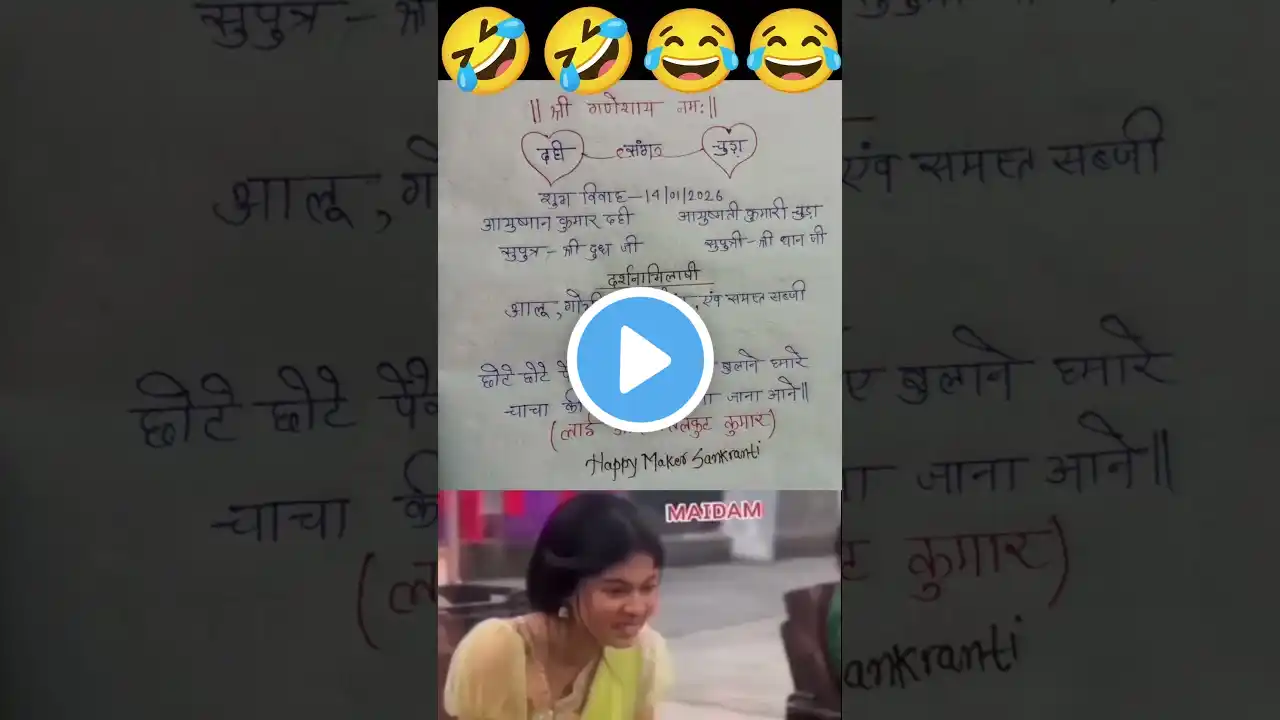 || श्री गणेशाय नमः||
दही संग चुड़ा
शुभ विवाह—14/01/2026
आयुष्मान कुमार दही आयुष्मती कुमारी चुड़ा
सुपुत्र - श्री दुध जी सुपुत्री - श्री धान जी
दर्शनाभिलाषी
आलू, एंव समस्त सब्जी
छोटे छोटे बुलाने हमारे
चाचा की जाना आने||
(लाई कुमार)
Happy Maker Sankranti
MAIDAM